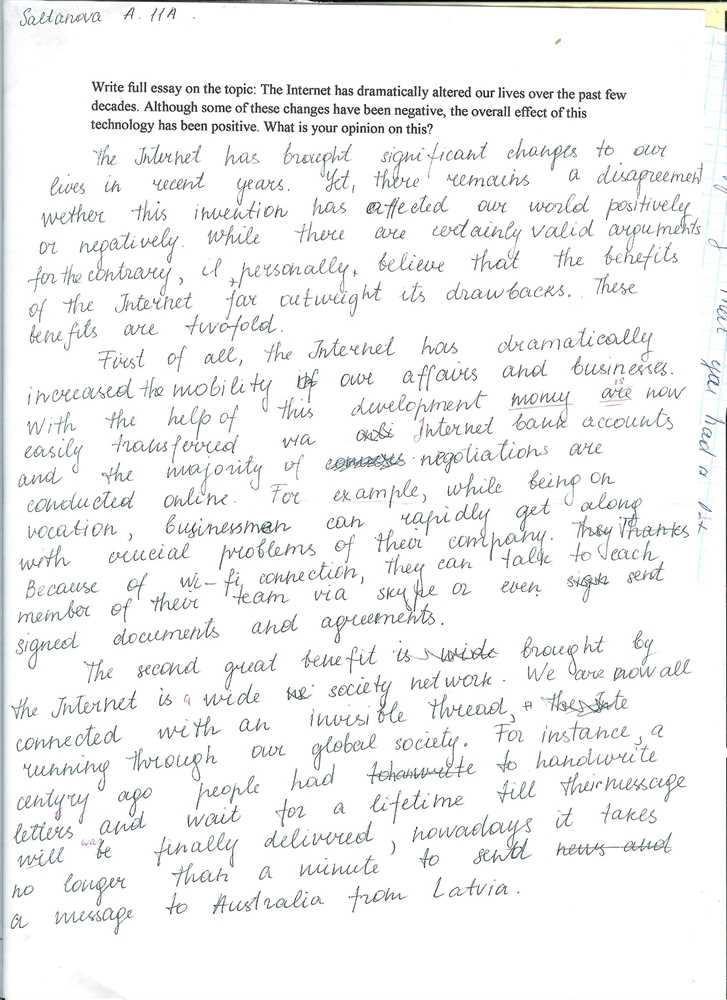 Saltanova A. 11A.
Write full essay on the topic: The Internet has dramatically altered our lives over the past few
decades. Although some of these changes have been negative, the overall effect of this
technology has been positive. What is your opinion on this?
The Internet has brought significant changes to our
lives in recent years. Yet, there remains a disagreement
wether this invention has affected our world positively
or negatively. While there are certainly valid arguments
for the contrary, I, personally, believe that the benefits
of the Internet far outweight its drawbacks. These
benefits are twofold.
First of all, the Internet has dramatically
increased the mobility of our affairs and businesses.
With the help of this development money are is now
easily transferred via Internet bank accounts
and the majority of negotiations are
conducted online. For example, while being on
vocation, businessmen can rapidly get along
with crucial problems of their company. They Thanks
Because of wi-fi connection, they can talk to each
member of their team via skype or even sent
signed documents and agreements.
The second great benefit is wide brought by
the Internet is a wide society network. We are now all
connected with an invisible thread,
running through our global society. For instance, a
centyry ago people had to handwrite
letters and wait for a lifetime till their message
will be finally delivered, nowadays it takes
no longer than a minute to send news and
a message to Australia from Latvia.
that you had a